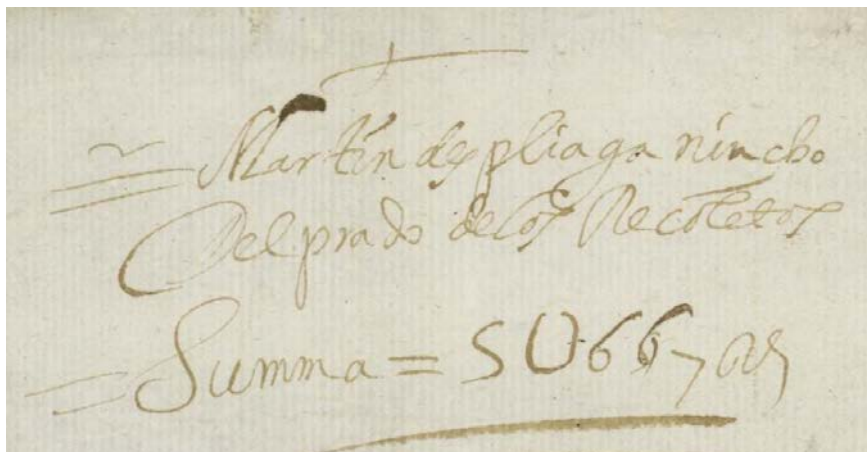 Martin de pliaga nincho
Del prado de los Recoletos
Summa = 5U66